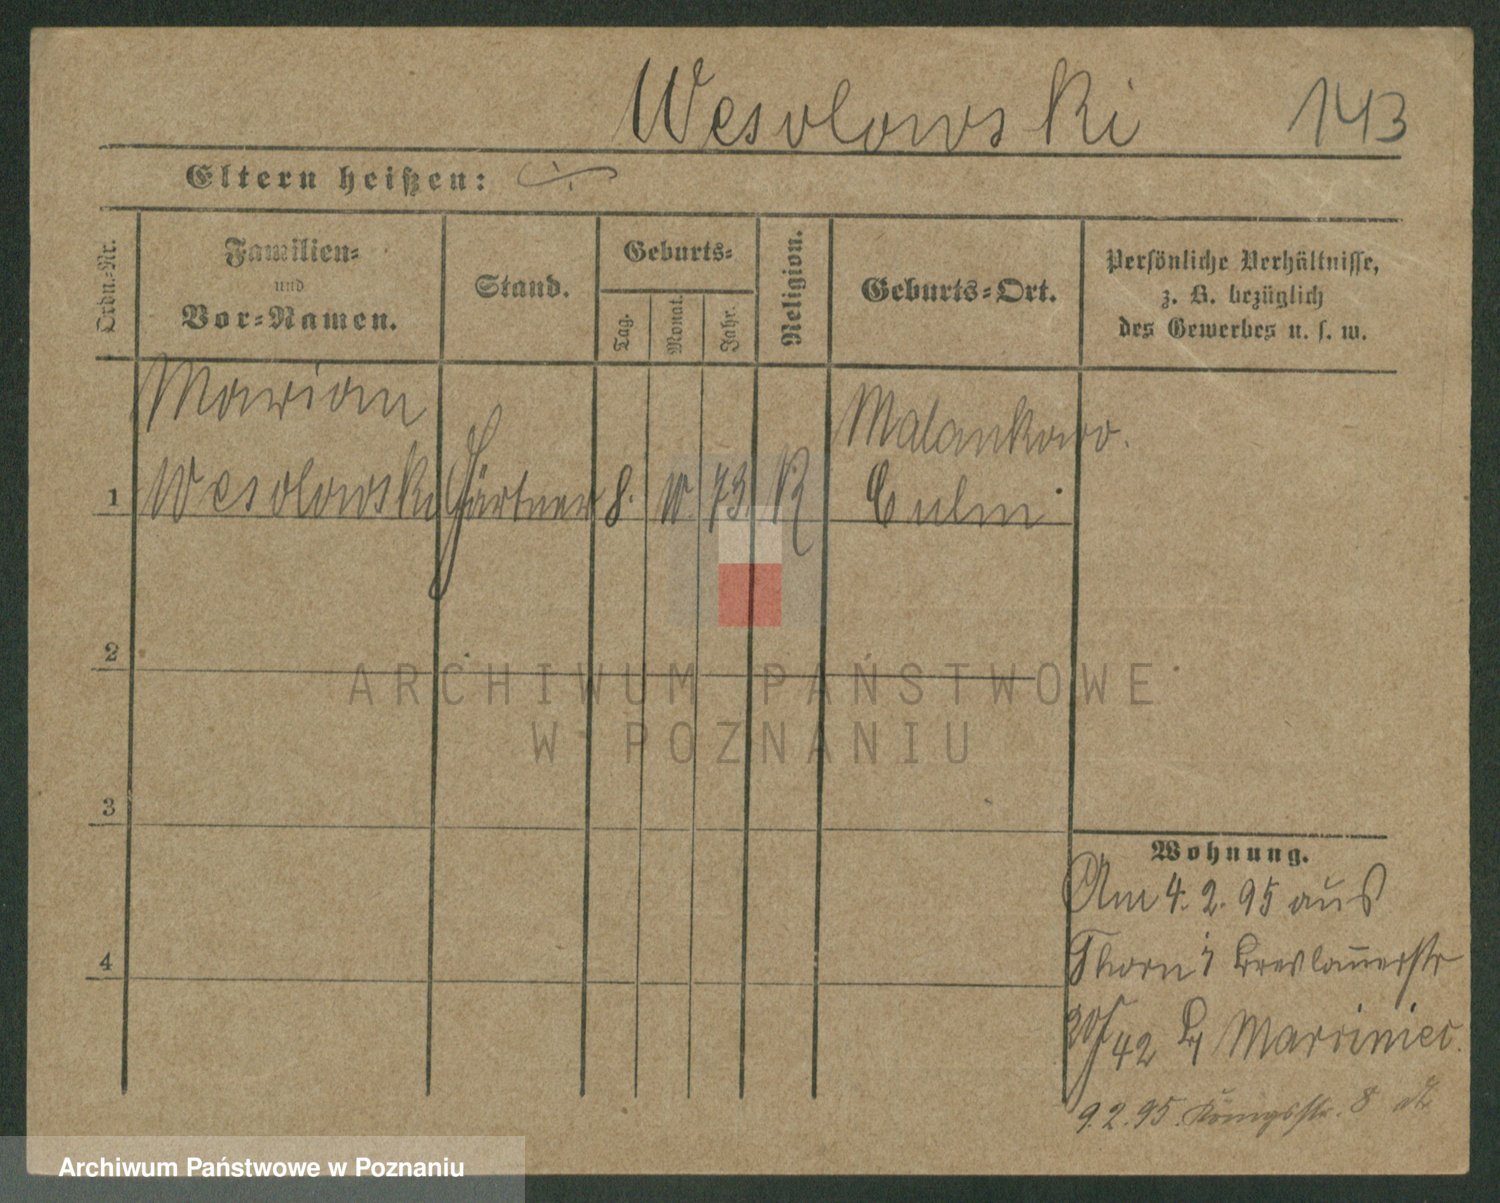 Wesolowski 143
Eltern heißen: ./.
Ordn.-Nr.
Familien-
und
Vor-Namen.
Stand.
Geburts-
Tag.
Monat.
Jahr.
Religion.
Geburts-Ort.
Persönliche Verhältnisse,
z. B. bezüglich
des Gewerbes u. s. w.
Marian
Malankowo.
1 Wesolowski Gärtner 8. 73 K Culm
2
3
4
ARCHIWUM PAŃSTWOWE
W POZNANIU
Wohnung.
Am 4. 2. 95 aus
Thorn Breslauerstr
42 Marciniec.
9.2.95. Königsstr. 8
Archiwum Państwowe w Poznaniu